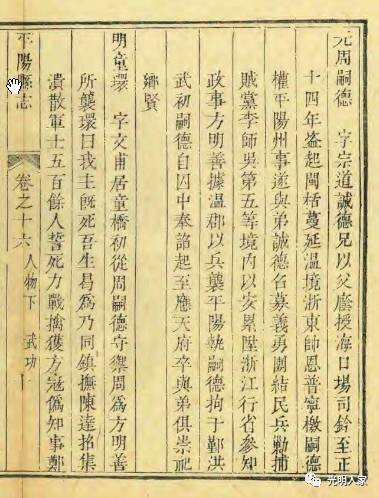 元周嗣德　字宗道誠德兄以父廕授海口場司鈴至正
十四年盗起閩栝蔓延温境浙東帥恩普寧檄嗣德
權平陽州事遂與弟誠德召募義勇團結民兵勦捕
賊黨李師吳第五等境内以安累陞浙江行省參知
政事方明善據温郡以兵襲平陽執嗣德拘于鄞洪
武初嗣德自囚中奉詔起至應天府卒與弟俱祟祀
鄉賢
明童環　字文甫居童橋初從周嗣德守禦周為方明善
所襲環曰我主旣死吾生曷為乃同鎮撫陳達招集
潰散軍士五百餘人誓死力戰擒獲方冦偽知事鄭
平陽縣志
卷之十六
人物下　武功
光明人家